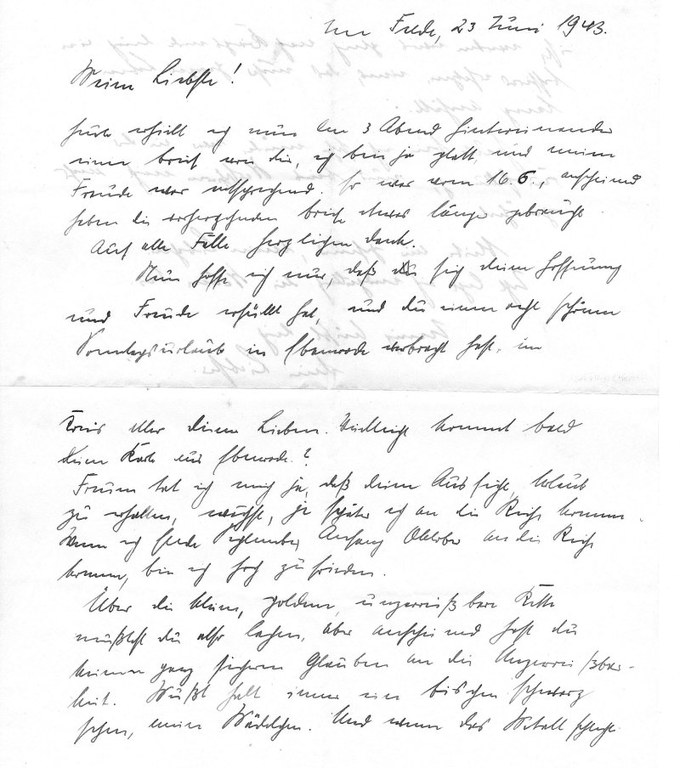 Im Felde, 23 Juni 1943.
Meine Liebste!
Heute erhielt ich nun den 3 Abend hintereinander
einen Brief von dir, ich bin ja platt und meine
Freude war entsprechend. Er war vom 16.6., anscheinend
haben die vorhergehenden Briefe etwas länger gebraucht.
Auf alle Fälle herzlichen Dank.
Nun hoffe ich nur, daß sich deine Hoffnung
und Freude erfüllt hat, und du einen recht schönen
Sonntagsurlaub in Ebenrode verbracht hast, im
Kreis aller deiner Lieben. Vielleicht kommt bald
eine Karte aus Ebenrode?
Freuen tut ich mich ja, daß deine Aussicht, Urlaub
zu erhalten, wächst, je später ich an die Reihe komme.
Wenn ich Ende September Anfang Oktober an die Reihe
komme, bin ich hoch zufrieden.
Über die kleine, goldene, unzerreißbare Kette
mußtest du also lachen, aber anscheinend hast du
keinen ganz sicheren Glauben an die Unzerreißbar-
keit. Mußt halt immer ein bischen schwarz
sehen, mein Mädelchen. Und wenn das Metall schlecht